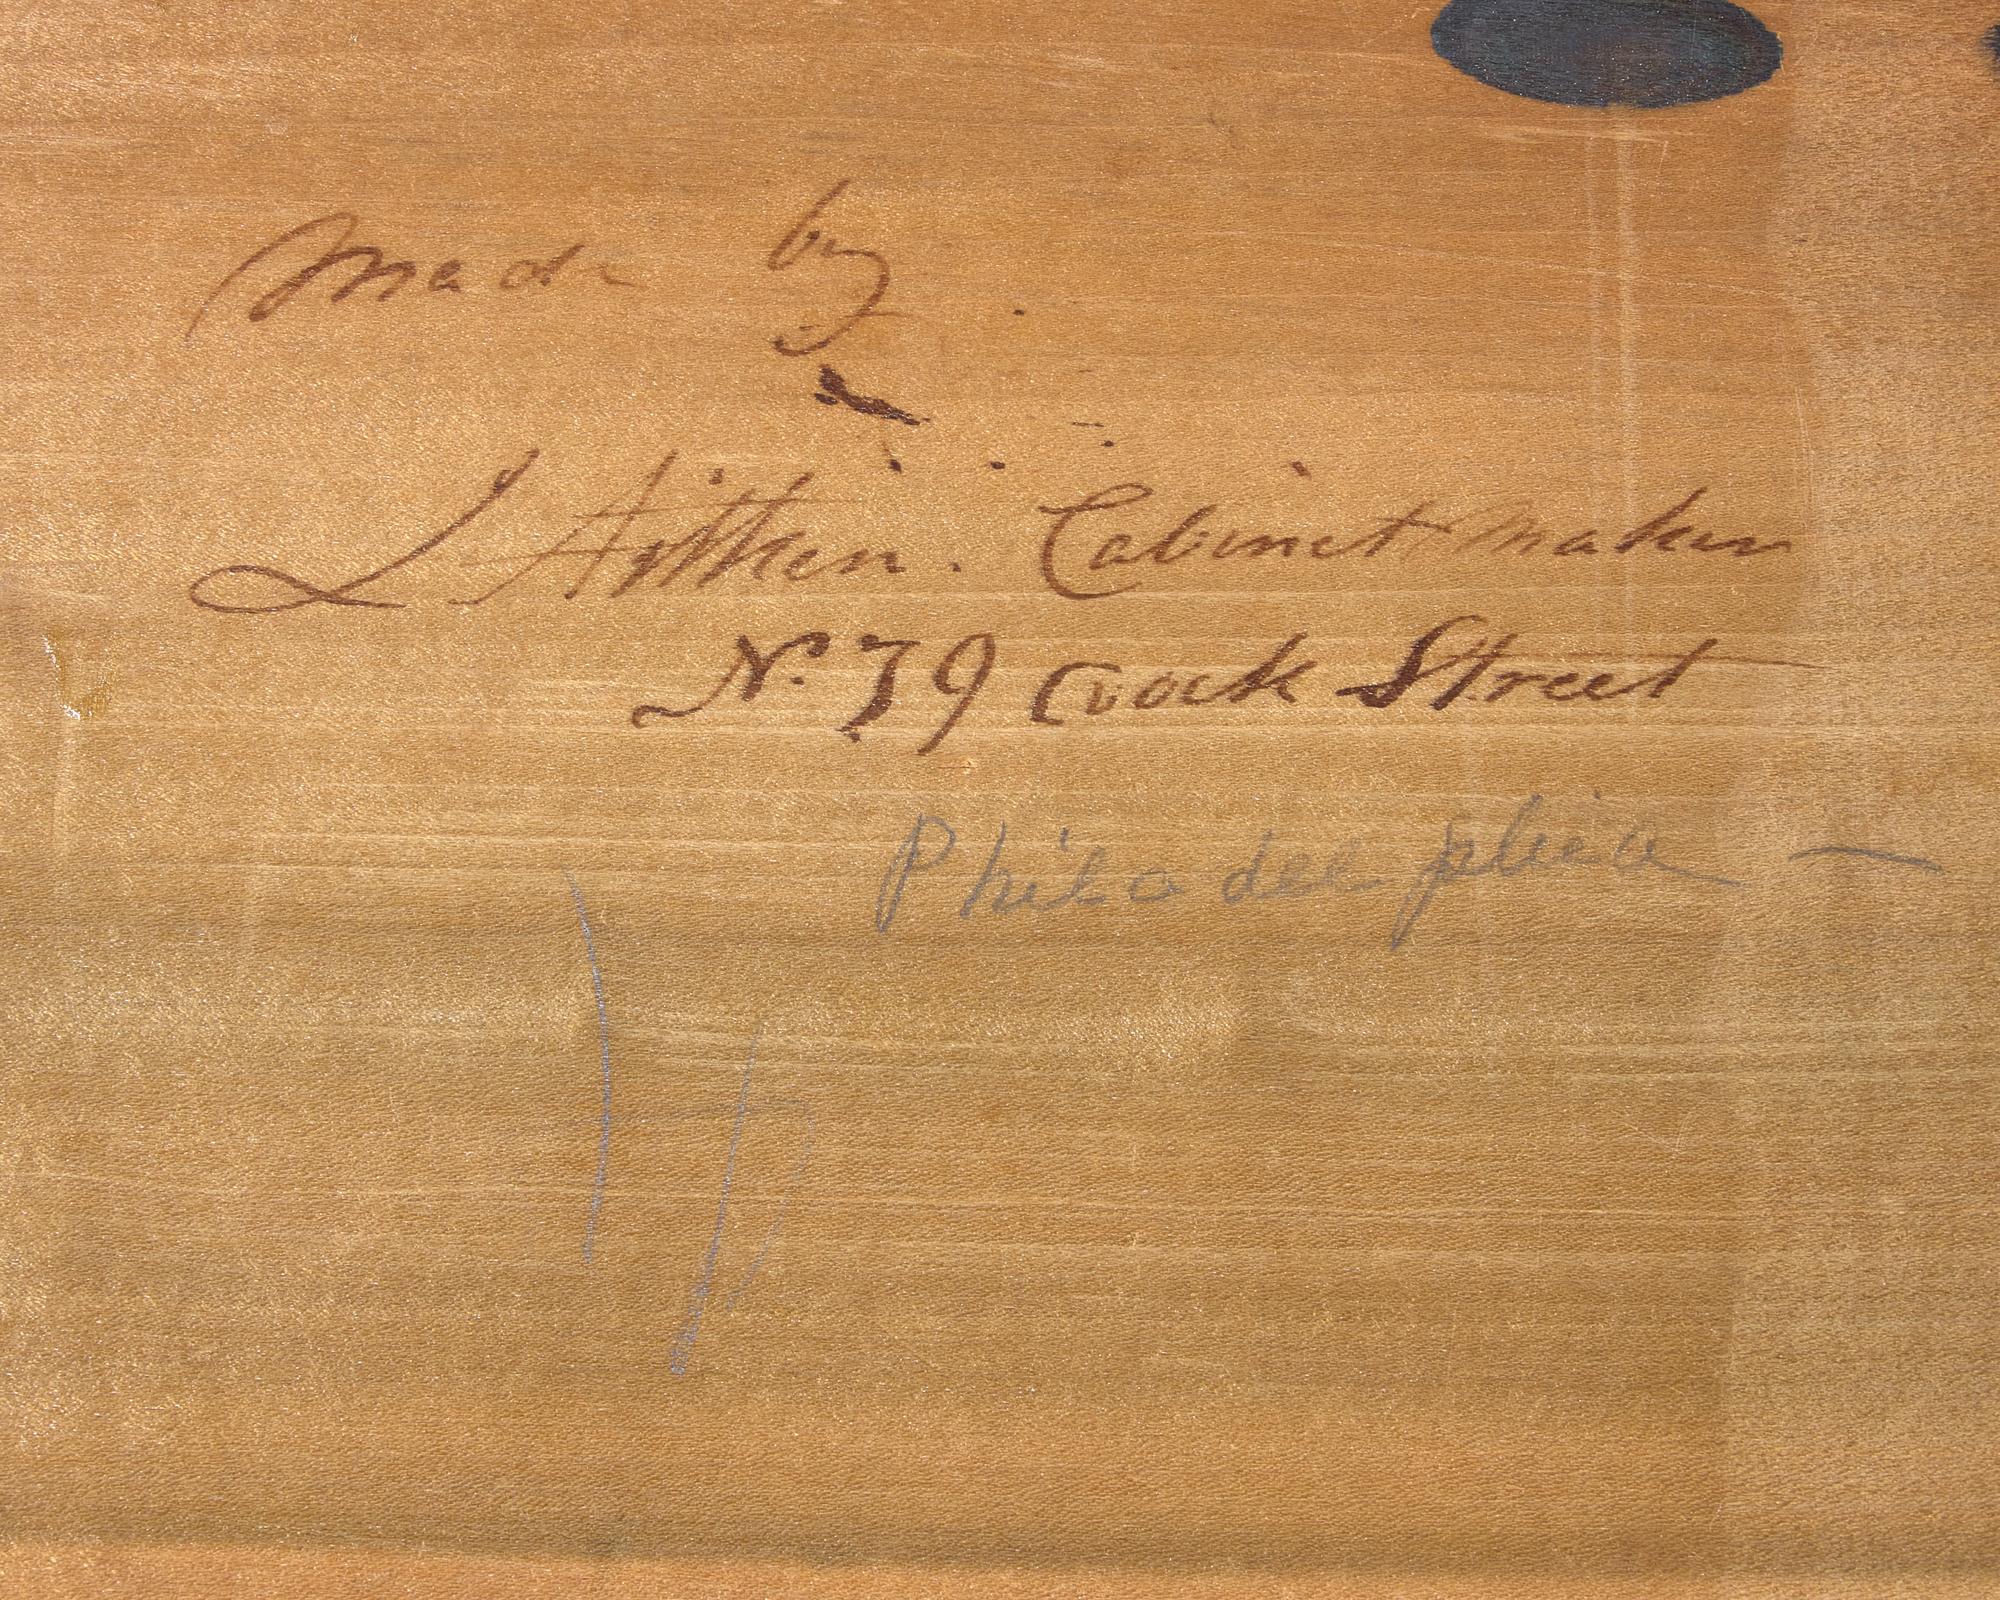 Made by
L Aitken. Cabinet Maker
N. 79 Dock Street
Philadelphia —